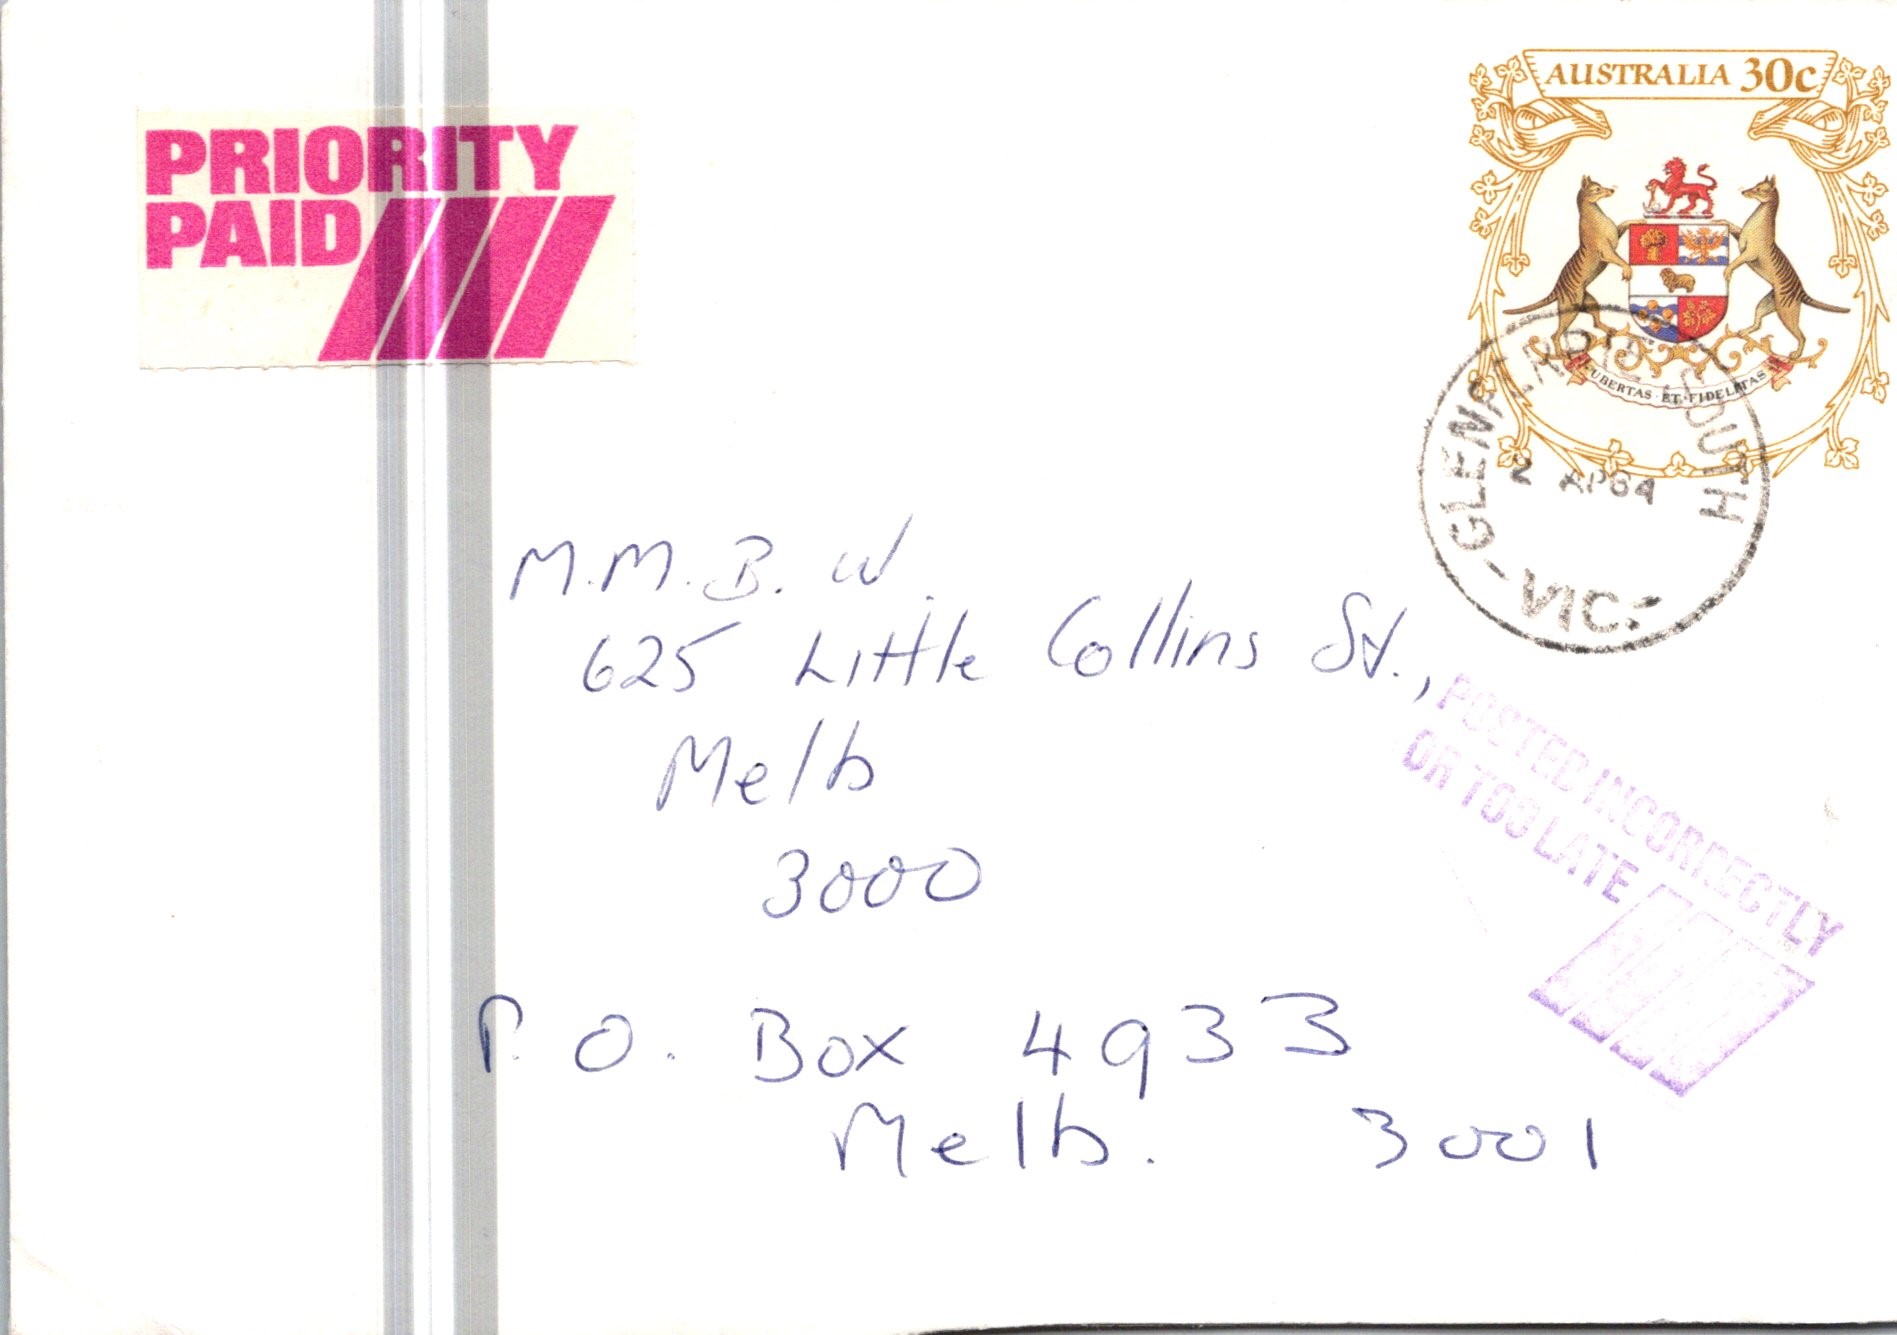 PRIORITY
PAID
AUSTRALIA 30c
UBERTAS · ET · FIDELITAS
GLENFERRIE SOUTH
2 AP 84
- VIC. -
M.M.B.W.
625 Little Collins St.,
Melb
3000
P.O. Box 4933
Melb. 3001
POSTED INCORRECTLY
OR TOO LATE